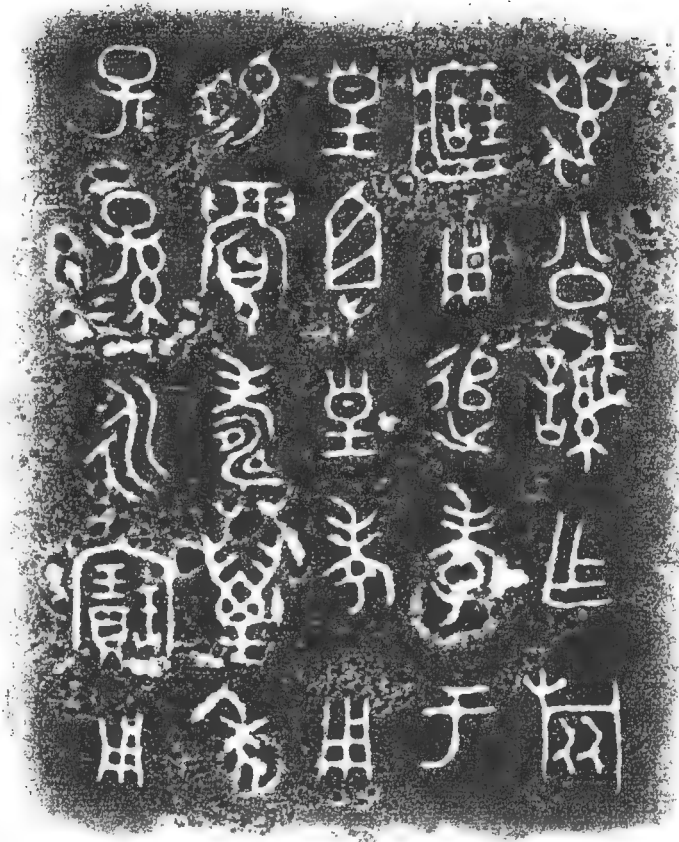 公諴乍旅
簠用追孝于
皇且皇考用
賜眉壽萬年
子孫永寶用